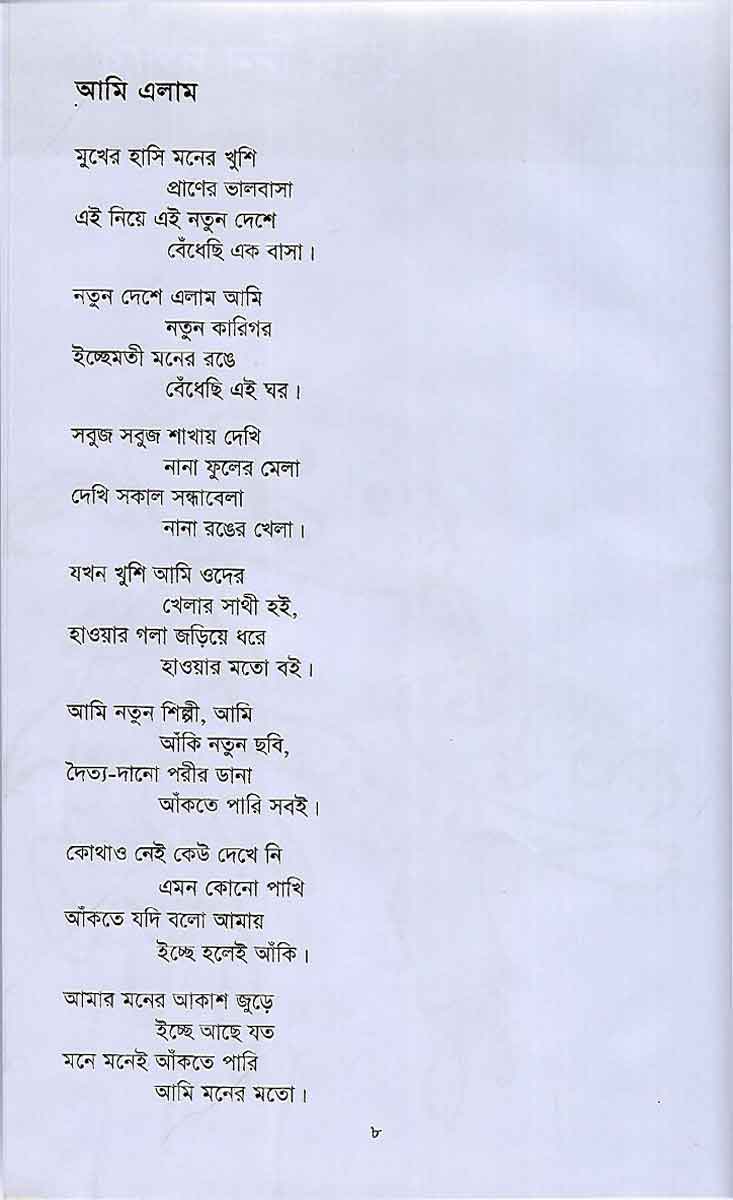 আমি এলাম
মুখের হাসি মনের খুশি
প্রাণের ভালবাসা
এই নিয়ে এই নতুন দেশে
বেঁধেছি এক বাসা ।
নতুন দেশে এলাম আমি
নতুন কারিগর
ইচ্ছেমতী মনের রঙে
বেঁধেছি এই ঘর ।
সবুজ সবুজ শাখায় দেখি
নানা ফুলের মেলা
দেখি সকাল সন্ধাবেলা
নানা রঙের খেলা ।
যখন খুশি আমি ওদের
খেলার সাথী হই,
হাওয়ার গলা জড়িয়ে ধরে
হাওয়ার মতো বই ।
আমি নতুন শিল্পী, আমি
আঁকি নতুন ছবি,
দৈত্য-দানো পরীর ডানা
আঁকতে পারি সবই ।
কোথাও নেই কেউ দেখে নি
এমন কোনো পাখি
আঁকতে যদি বলো আমায়
ইচ্ছে হলেই আঁকি ।
আমার মনের আকাশ জুড়ে
ইচ্ছে আছে যত
মনে মনেই আঁকতে পারি
আমি মনের মতো ।
৮